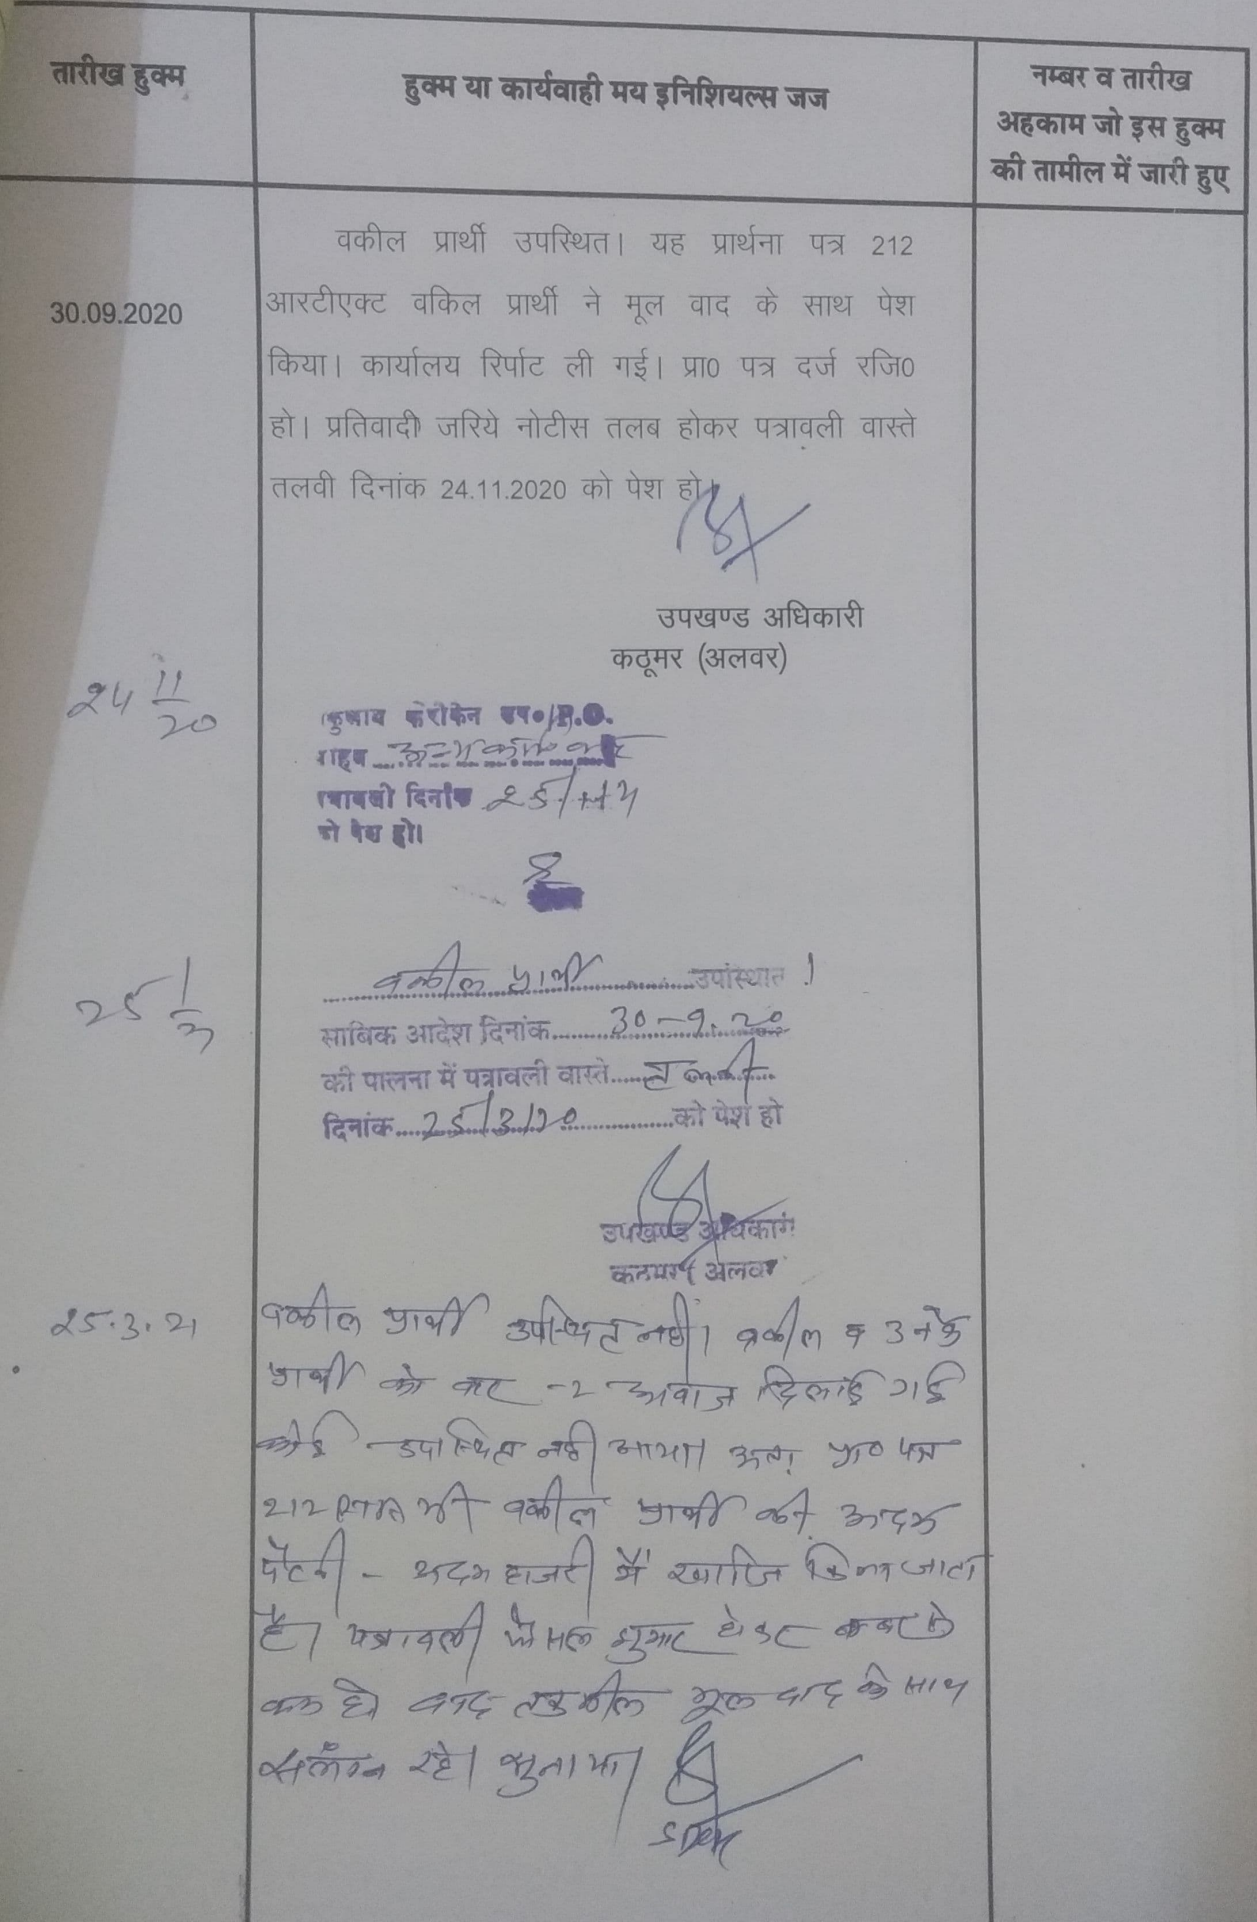 तारीख हुक्म
हुक्म या कार्यवाही मय इनिशियल्स जज
नम्बर व तारीख
अहकाम जो इस हुक्म
की तामील में जारी हुए
30.09.2020
वकील प्रार्थी उपस्थित। यह प्रार्थना पत्र 212
आरटीएक्ट वकिल प्रार्थी ने मूल वाद के साथ पेश
किया। कार्यालय रिर्पाट ली गई। प्रा0 पत्र दर्ज रजि0
हो। प्रतिवादी जरिये नोटीस तलब होकर पत्रावली वास्ते
तलवी दिनांक 24.11.2020 को पेश हो।
उपखण्ड अधिकारी
कठूमर (अलवर)
24 11/20
दिनांक
को पेश हो।
25 1
वकील प्रार्थी उपस्थित।
साबिक आदेश दिनांक 30-9.20
की पालना में पत्रावली वास्ते तलवी
दिनांक 25/3/20 को पेश हो
उपखण्ड अधिकारी
कठूमर अलवर
25.3.21
वकील प्रार्थी उपस्थित नही। वकील व उनके
प्रार्थी को बार -2 आवाज दिलाई गई
कोई उपस्थित नही आया। अतः प्रा0 पत्र
212 वकील प्रार्थी की अदम
पैरवी - अदम हाजरी में खारिज किया जाता
है। पत्रावली फैसल शुमार होकर नम्बर से
कम हो वाद तकमील मूल वाद के साथ
सलंग्न रहे। सुनाया।
SDM